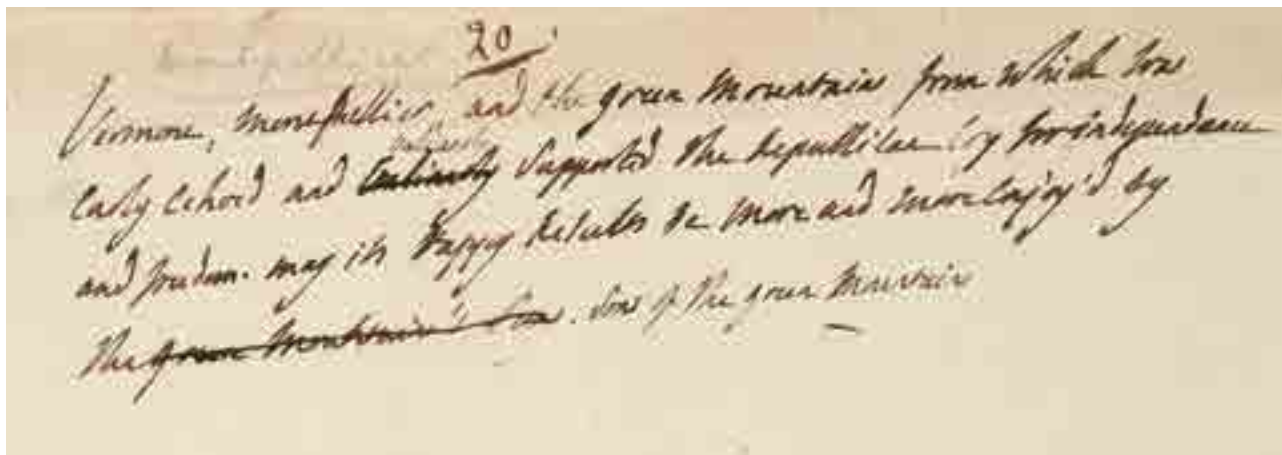 20
Vermont, montpellier, and the green Mountain from which was
Early Echoed and Supported The Republican Cry for independence
and freedom. may its Happy Results be more and more Enjoy'd by
the green Mountain's Son. Sons of the green Mountain